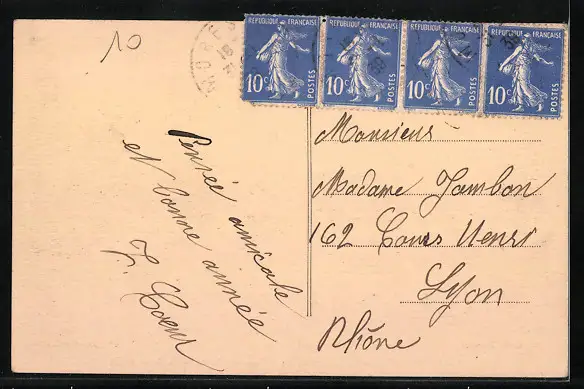 10
RÉPUBLIQUE FRANÇAISE RÉPUBLIQUE FRANÇAISE RÉPUBLIQUE FRANÇAISE RÉPUBLIQUE FRANÇAISE
10c POSTES 10c POSTES 10c POSTES 10c POSTES
Pensée amicale
et bonne année
Monsieur
Madame Jambon
162 Cours Henri
Lyon
Rhône